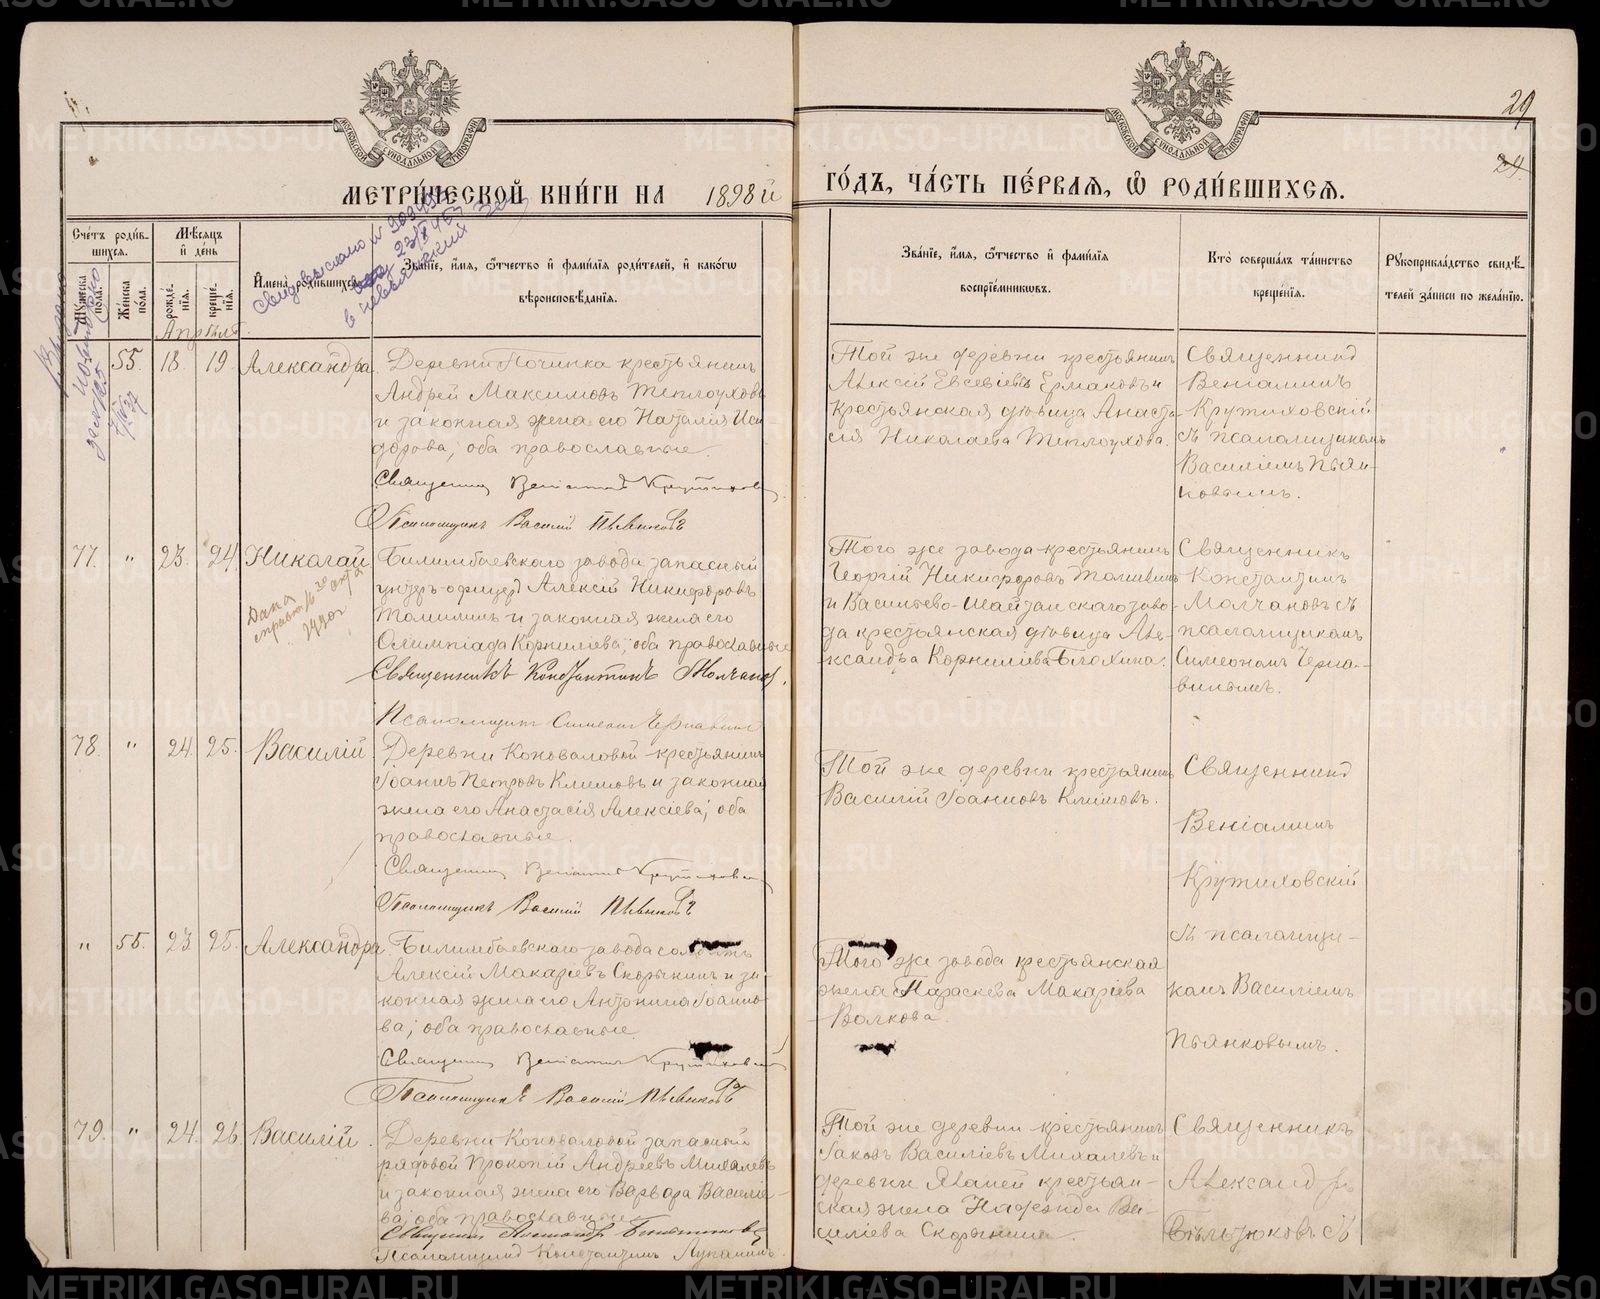 29
24
МЕТРИ́ЧЕСКОЙ КНИ́ГИ НА 1898 й
ГО́ДЪ, ЧА́СТЬ ПЕ́РВАЯ, Ѿ РОДИ́ВШИХСЯ.
Сче́тъ роди́в-
шихся.
Мѣ́сяцъ
и҆ де́нь
Му́жеска по́ла.
Же́нска по́ла.
рожде́нїѧ.
креще́нїѧ.
И҆мена̀ роди́вшихся.
Зва́нїе, и҆́мѧ, ѻ҆́тчество и҆ фами́лїѧ роди́телей, и҆ како́гѡ
вѣроисповѣ́данїѧ.
Зва́нїе, и҆́мѧ, ѻ҆́тчество и҆ фами́лїѧ
воспрїе́мникѡвъ.
Кто̀ соверша́лъ та́инство
креще́нїѧ.
Рꙋкоприкла́дство свидѣ́-
телей за́писи по жела́нїю.
Апрѣль.
55. 18 19 Александра
Деревни Починка крестьянинъ
Андрей Максимовъ Теплоуховъ
и законная жена его Наталія Иси-
дорова; оба православные.
Священник Веніамин Крутиховский
Псаломщикъ Василій Пьянковъ
Той же деревни крестьянинъ
Алексій Евсевіевъ Ермаковъ и
крестьянская дѣвица Анаста-
сія Николаева Теплоухова.
Священникъ
Веніаминъ
Крутиховскій
съ псаломщикомъ
Василіемъ Пьян-
ковымъ.
77. " 23. 24. Николай
Дана
справка
Билимбаевскаго завода запасный
унтеръ-офицеръ Алексій Никифоровъ
Томилинъ и законная жена его
Олимпіада Корниліева; оба православные
Священникъ Константинъ Молчановъ.
Псаломщикъ Симеонъ Чернавинъ
Того же завода крестьянинъ
Георгій Никифоровъ Томилинъ
и Васильево-Шайтанскаго заво-
да крестьянская дѣвица Але-
ксандра Корниліева Блохина.
Священникъ
Константинъ
Молчановъ съ
псаломщикомъ
Симеономъ Черна-
винымъ.
78. " 24. 25. Василій
Деревни Коноваловой крестьянинъ
Іоаннъ Петровъ Климовъ и законная
жена его Анастасія Алексіева; оба
православные.
Священник Веніамин Крутиховский
Псаломщикъ Василій Пьянковъ
Той же деревни крестьянинъ
Василій Іоанновъ Климовъ.
Священникъ
Веніаминъ
Крутиховскій
съ псаломщи-
комъ Василіемъ
Пьянковымъ.
" 56. 23 25. Александра
Билимбаевскаго завода солдатъ
Алексій Макаріевъ Скорынинъ и за-
конная жена его Антонина Іоанно-
ва; оба православные
Священник Веніамин Крутиховский
Псаломщикъ Василій Пьянковъ
Того же завода крестьянская
жена Параскева Макаріева
Волкова.
79. " 24. 26 Василій.
Деревни Коноваловой запасный
рядовой Прокопій Андреевъ Михалевъ
и законная жена его Варвара Василіе-
ва; оба православные
Псаломщикъ Константинъ Лупанинъ.
Той же деревни крестьянинъ
Іаковъ Василіевъ Михалевъ и
деревни крестьян-
ская жена Ва-
силіева Скорынина.
Священникъ
Александръ
Бѣльтюковъ съ